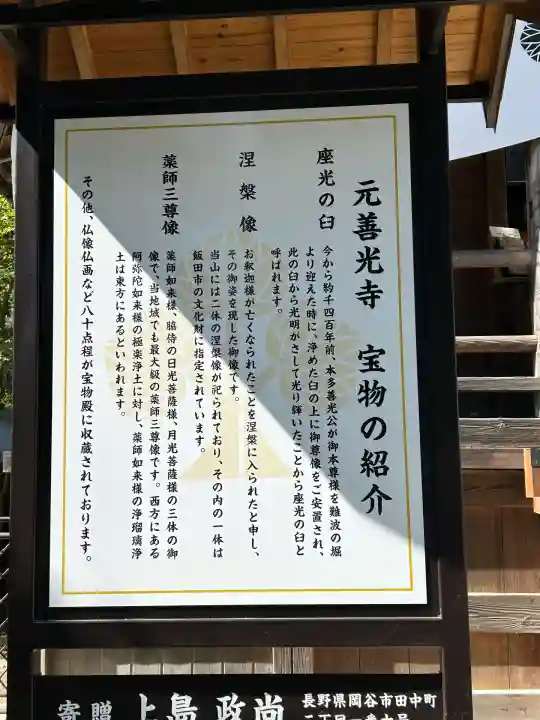 元善光寺 宝物の紹介
座光の臼
今から約千四百年前、本多善光公が御本尊様を難波の堀
より迎えた時に、浄めた臼の上に御尊像をご安置され、
此の臼から光明がさして光り輝いたことから座光の臼と
呼ばれます。
涅槃像
お釈迦様が亡くなられたことを涅槃に入られたと申し、
その御姿を現した御像です。
当山には二体の涅槃像が祀られており、その内の一体は
飯田市の文化財に指定されています。
薬師三尊像
薬師如来様、脇侍の日光菩薩様、月光菩薩様の三体の御
像で、当地域でも最大級の薬師三尊像です。西方にある
阿弥陀如来様の極楽浄土に対し、薬師如来様の浄瑠璃浄
土は東方にあるといわれます。
その他、仏像仏画など八十点程が宝物殿に収蔵されております。
寄贈 上島政尚
長野県岡谷市田中町